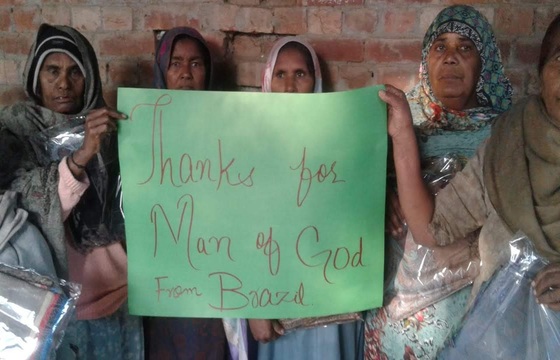 Thanks for
Man of God
From Brazil